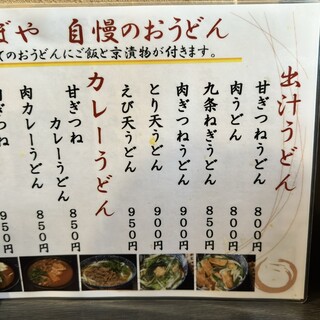 ぎや 自慢のおうどん
てのおうどんにご飯と京漬物が付きます。
出汁うどん
甘ぎつねうどん 800円
肉うどん 800円
九条ねぎうどん 850円
肉ぎつねうどん 900円
とり天うどん 900円
えび天うどん 950円
カレーうどん
甘ぎつね
カレーうどん 850円
肉カレーうどん 850円
950円